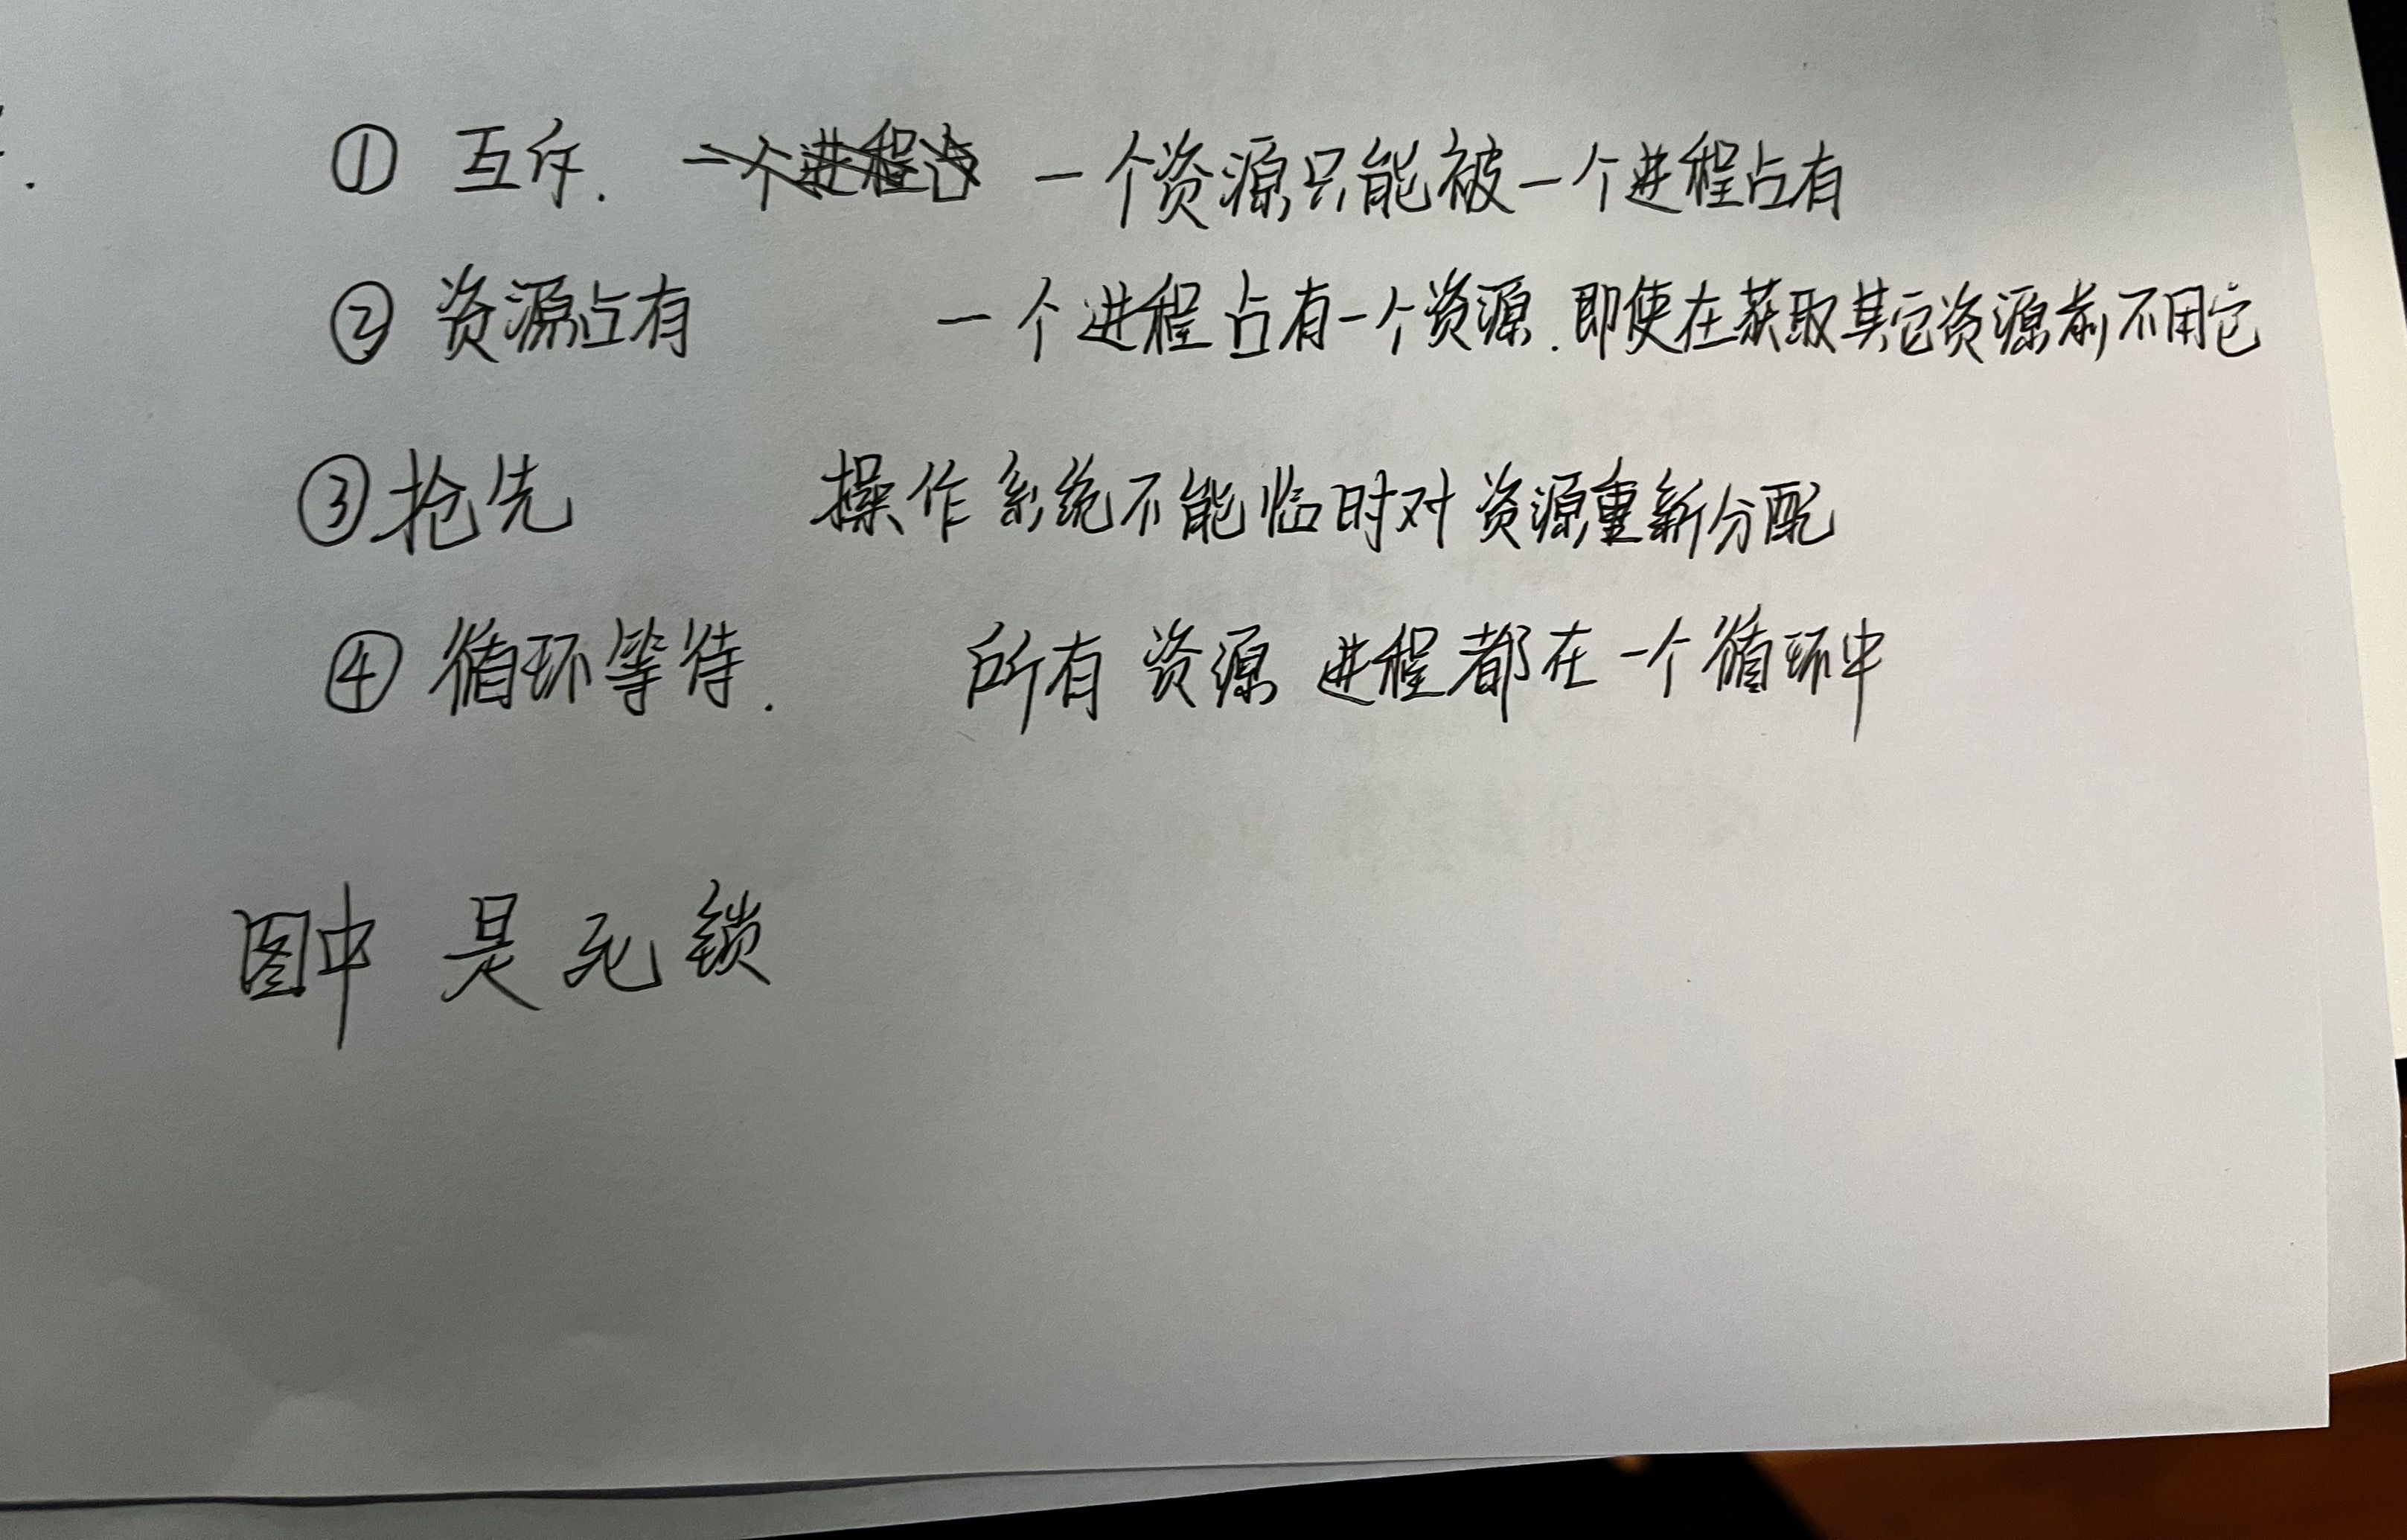 ① 互斥. 一个资源只能被一个进程占有
② 资源占有 一个进程占有一个资源.即使在获取其它资源前不用它
③ 抢先 操作系统不能临时对资源重新分配
④ 循环等待. 所有资源进程都在一个循环中
图中是死锁